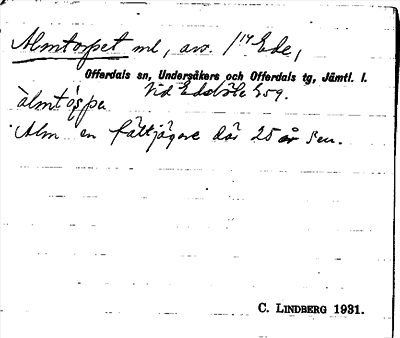 Almtorpet ml, av. 1/14 Ede,
Offerdals sn, Undersåkers och Offerdals tg, Jämtl. l.
Vid Edebole 259.
àlmtòṣpa
Alm en fältjägare där 25 år sen.
C. LINDBERG 1931.